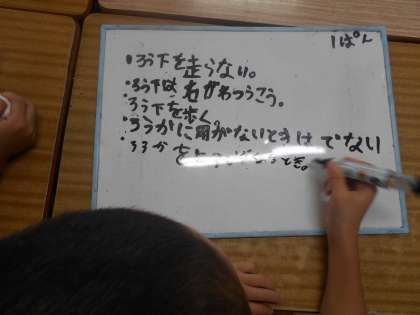 1ぱん
・ろう下を走らない。
・ろう下は右がわつうこう。
ろう下を歩く
・ろうかに用がないときはでない
・ろうか を